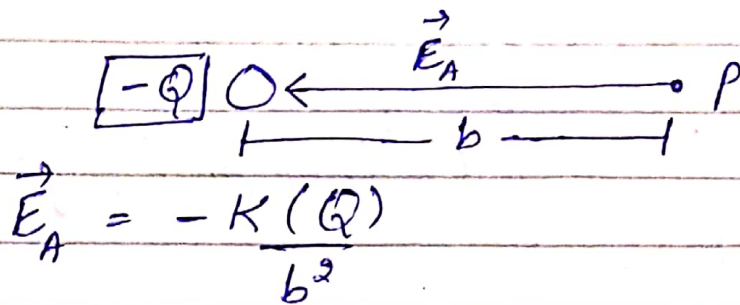 E⃗_A
-Q P
b
E⃗_A = - K(Q)
b²